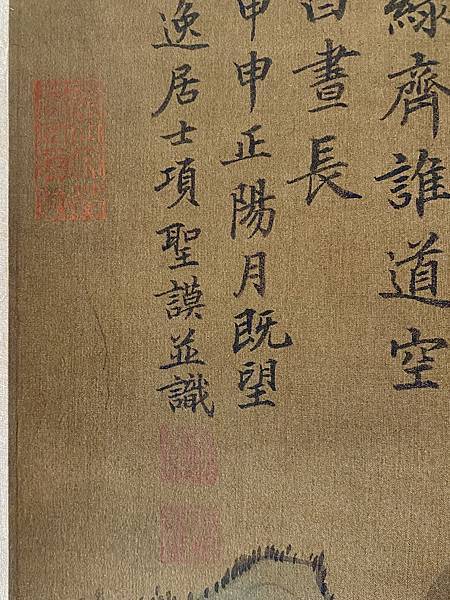 綠齊誰道空
白晝長
甲申正陽月既望
逸居士項聖謨並識